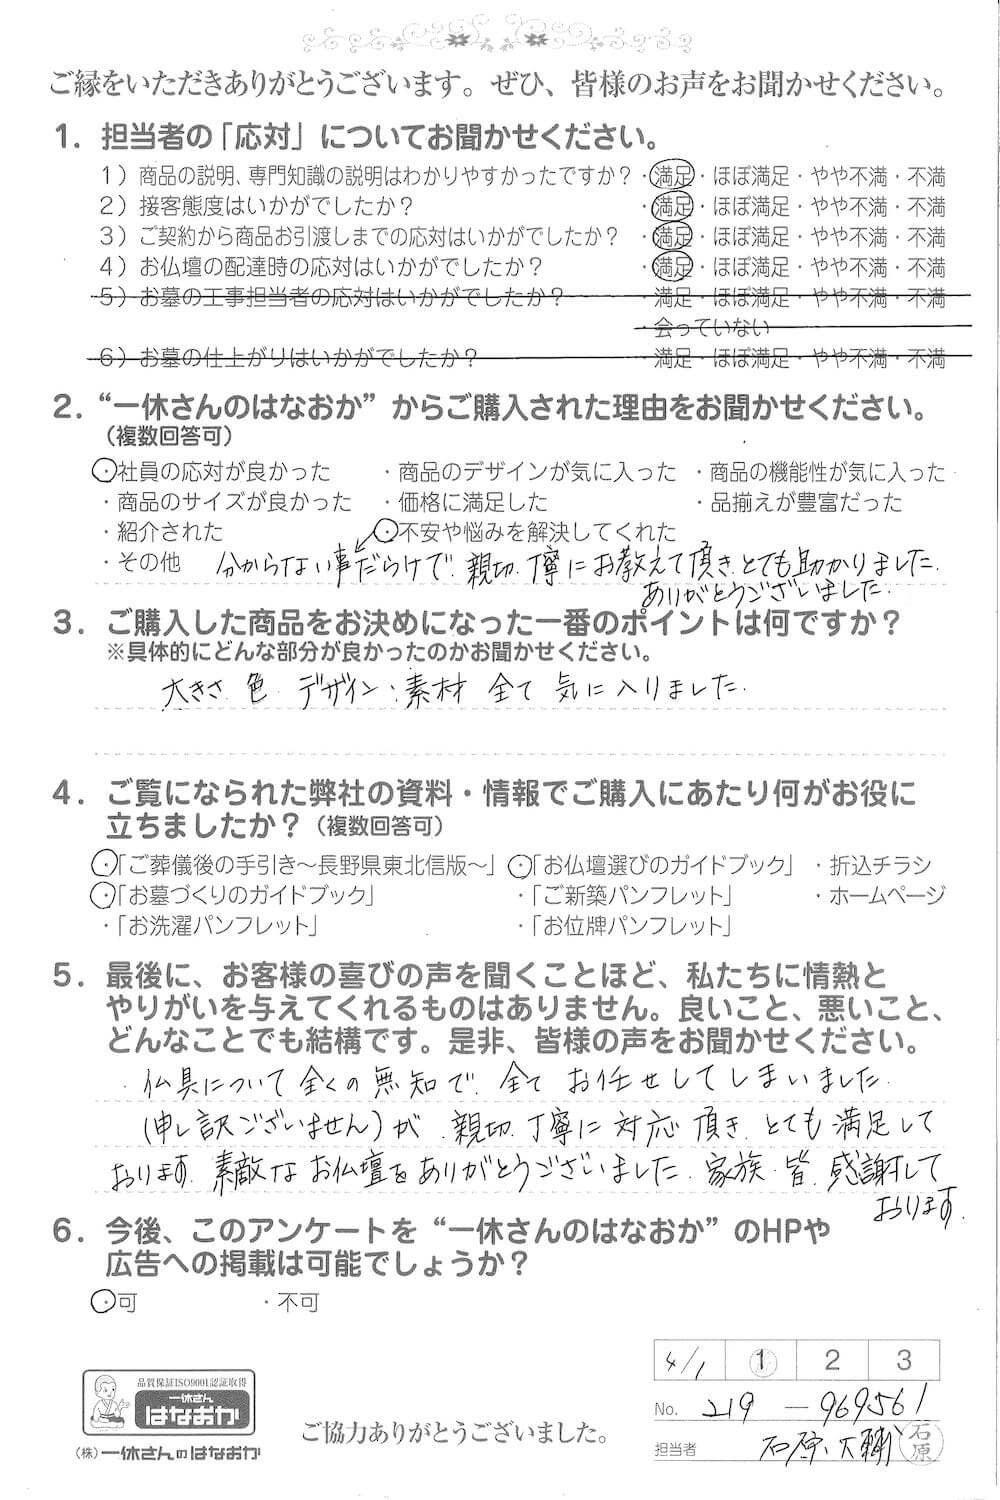 ご縁をいただきありがとうございます。ぜひ、皆様のお声をお聞かせください。
1. 担当者の「応対」についてお聞かせください。
1）商品の説明、専門知識の説明はわかりやすかったですか？ ・満足・ほぼ満足・やや不満・不満
2）接客態度はいかがでしたか？ ・満足・ほぼ満足・やや不満・不満
3）ご契約から商品お引渡しまでの応対はいかがでしたか？ ・満足・ほぼ満足・やや不満・不満
4）お仏壇の配達時の応対はいかがでしたか？ ・満足・ほぼ満足・やや不満・不満
5）お墓の工事担当者の応対はいかがでしたか？ ・満足・ほぼ満足・やや不満・不満
・会っていない
6）お墓の仕上がりはいかがでしたか？ ・満足・ほぼ満足・やや不満・不満
2. “一休さんのはなおか” からご購入された理由をお聞かせください。
（複数回答可）
・社員の応対が良かった ・商品のデザインが気に入った ・商品の機能性が気に入った
・商品のサイズが良かった ・価格に満足した ・品揃えが豊富だった
・紹介された ・不安や悩みを解決してくれた
・その他 分からない事だらけで、親切、丁寧にお教えて頂きとても助かりました。
ありがとうございました。
3. ご購入した商品をお決めになった一番のポイントは何ですか？
※具体的にどんな部分が良かったのかお聞かせください。
大きさ 色 デザイン、素材 全て 気に入りました。
4. ご覧になられた弊社の資料・情報でご購入にあたり何がお役に
立ちましたか？（複数回答可）
・「ご葬儀後の手引き～長野県東北信版～」 ・「お仏壇選びのガイドブック」 ・折込チラシ
・「お墓づくりのガイドブック」 ・「ご新築パンフレット」 ・ホームページ
・「お洗濯パンフレット」 ・「お位牌パンフレット」
5. 最後に、お客様の喜びの声を聞くことほど、私たちに情熱と
やりがいを与えてくれるものはありません。良いこと、悪いこと、
どんなことでも結構です。是非、皆様の声をお聞かせください。
・仏具について全くの無知で、全てお任せしてしまいました
(申し訳ございません)が、親切、丁寧に対応頂き、とても満足して
おります。素敵なお仏壇をありがとうございました。家族、皆、感謝して
おります。
6. 今後、このアンケートを “一休さんのはなおか” のHPや
広告への掲載は可能でしょうか？
・可 ・不可
4/1 1 2 3
品質保証ISO9001認証取得
一休さん
はなおか
(株) 一休さんのはなおか
ご協力ありがとうございました。
No. 219－969561
担当者 石原、大輔 石原